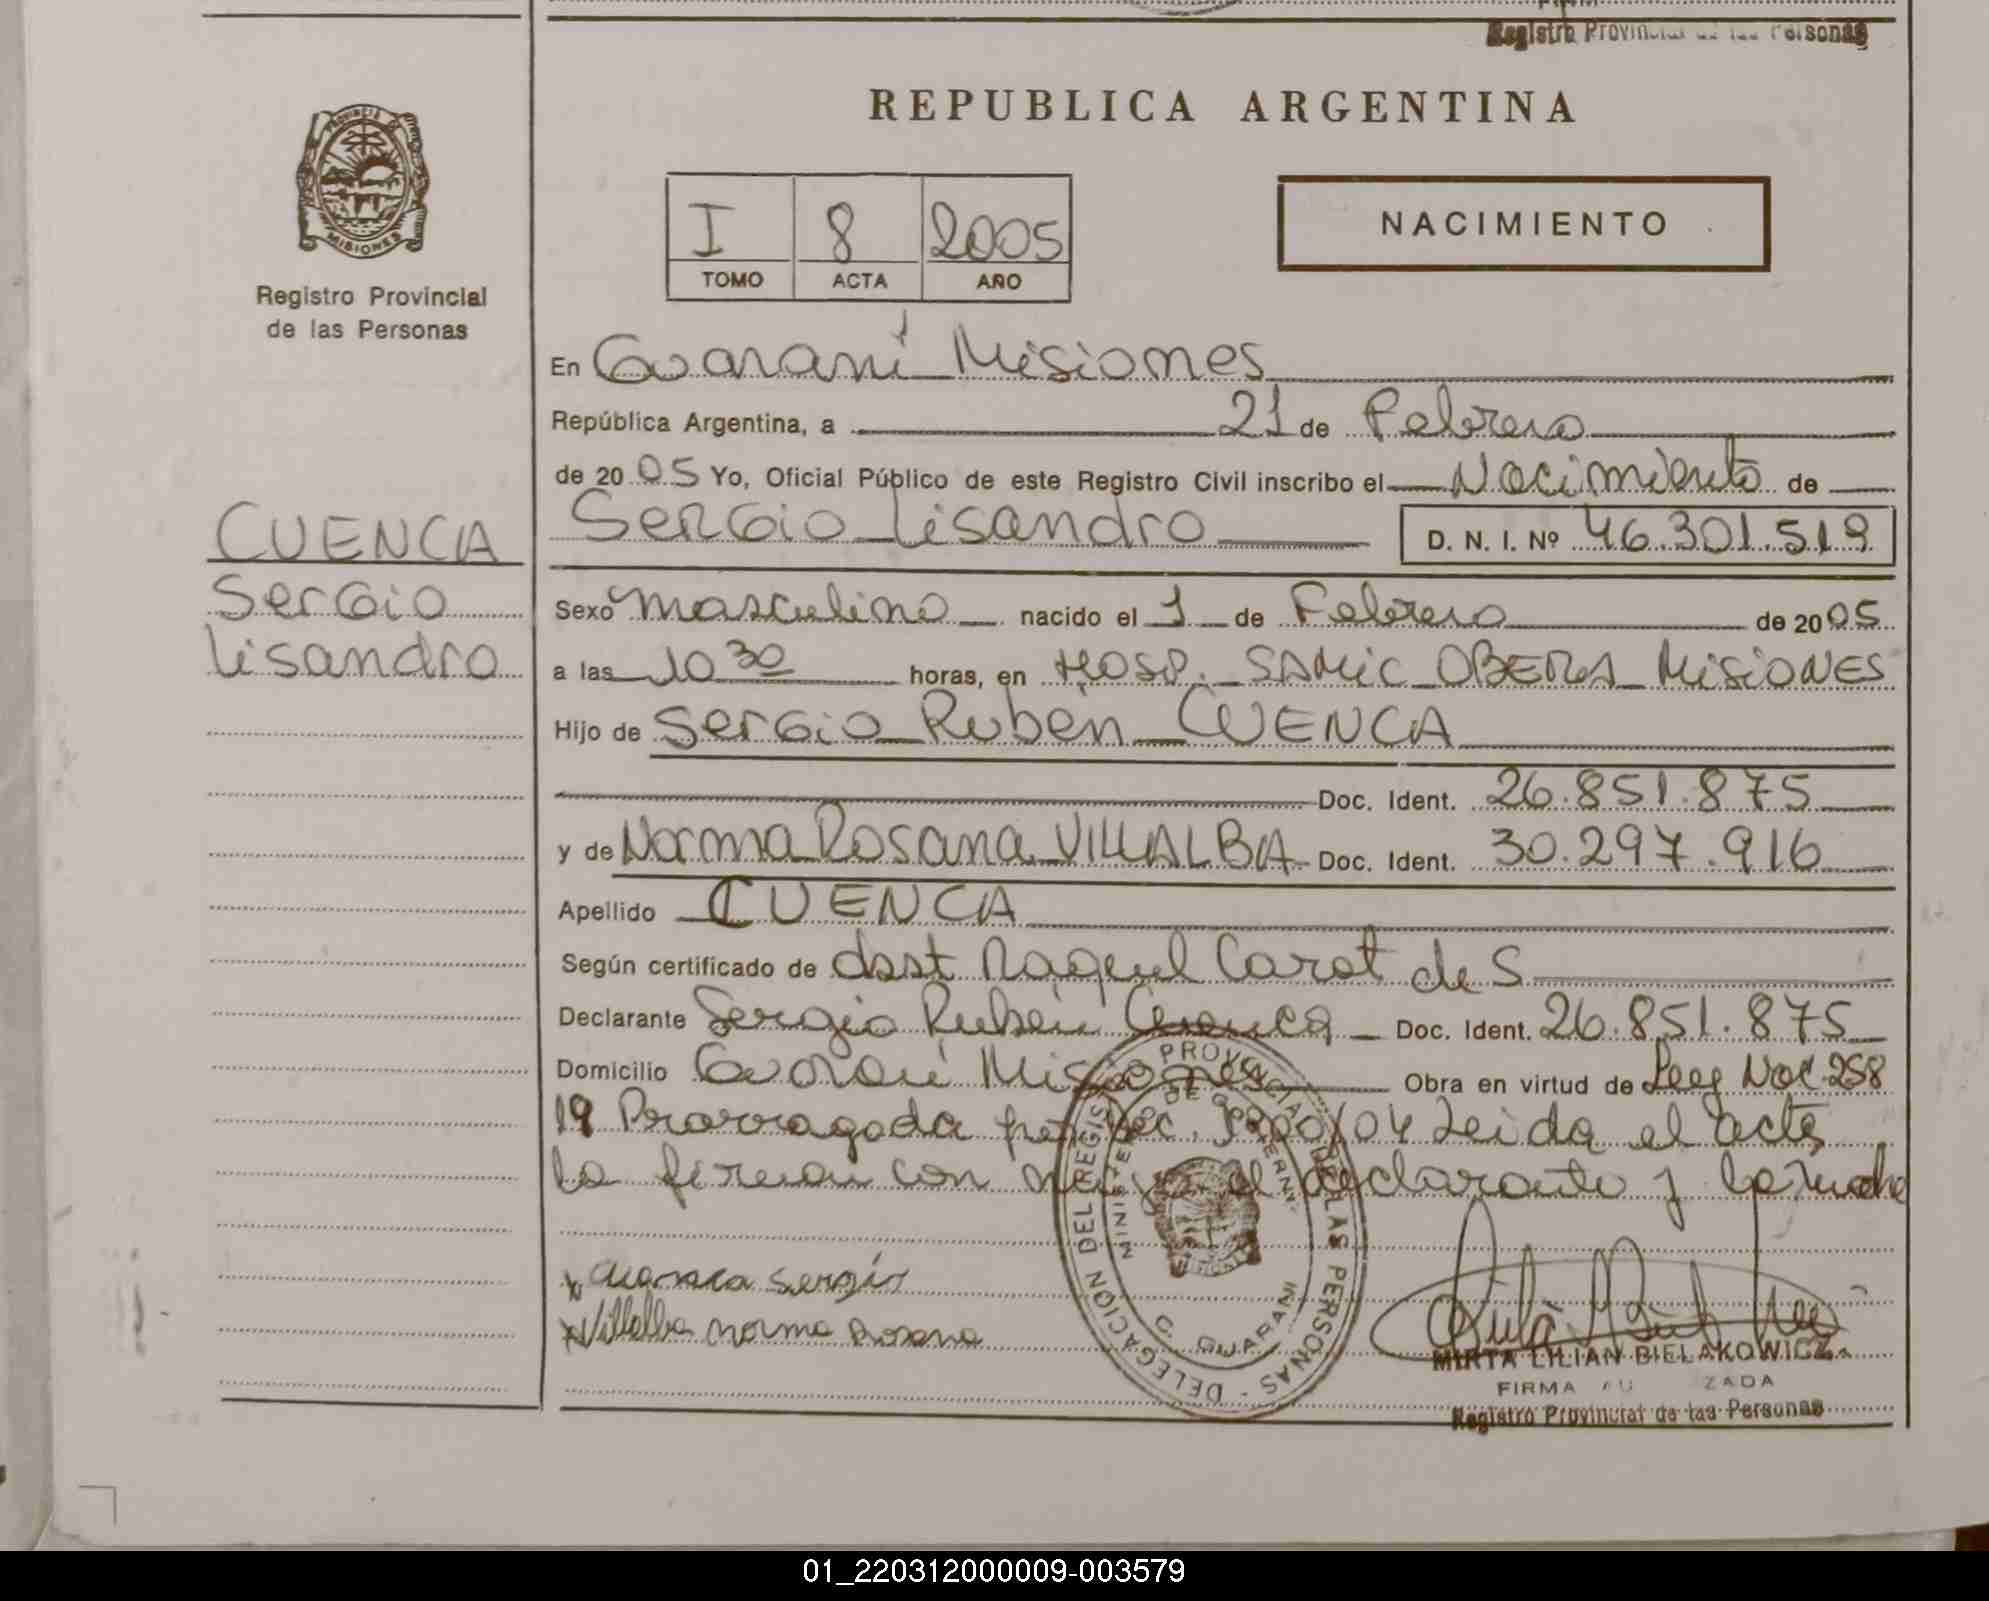 Registro Provincial de las Personas
REPUBLICA ARGENTINA
PROVINCIA DE
MISIONES
Registro Provincial
de las Personas
I 8 2005
TOMO ACTA AÑO
NACIMIENTO
CUENCA
Sergio
Lisandro
En Guaraní Misiones
República Argentina, a 21 de Febrero
de 2005 Yo, Oficial Público de este Registro Civil inscribo el Nacimiento de
Sergio Lisandro D. N. I. Nº 46.301.519
Sexo masculino nacido el 1 de Febrero de 2005
a las 10 30 horas, en HOSP. SAMIC OBERA MISIONES
Hijo de Sergio Rubén CUENCA
Doc. Ident. 26.851.875
y de Norma Rosana VILLALBA Doc. Ident. 30.297.916
Apellido CUENCA
Según certificado de obst Raquel Carot de S
Declarante Sergio Rubén Cuenca Doc. Ident. 26.851.875
Domicilio Guaraní Misiones Obra en virtud de Ley Nac. 258
19 Prorrogada por Dec. /04 Leida el acta,
la firman con migo el declarante y la madre
Cuenca Sergio
Villalba Norma Rosana
PROVINCIAL DE LAS PERSONAS - DELEGACION DEL REGISTRO
MINISTERIO DE GOBIERNO
C. GUARANI
MIRTA LILIAN BIELAKOWICZ
FIRMA AU ZADA
Registro Provincial de las Personas
01_220312000009-003579